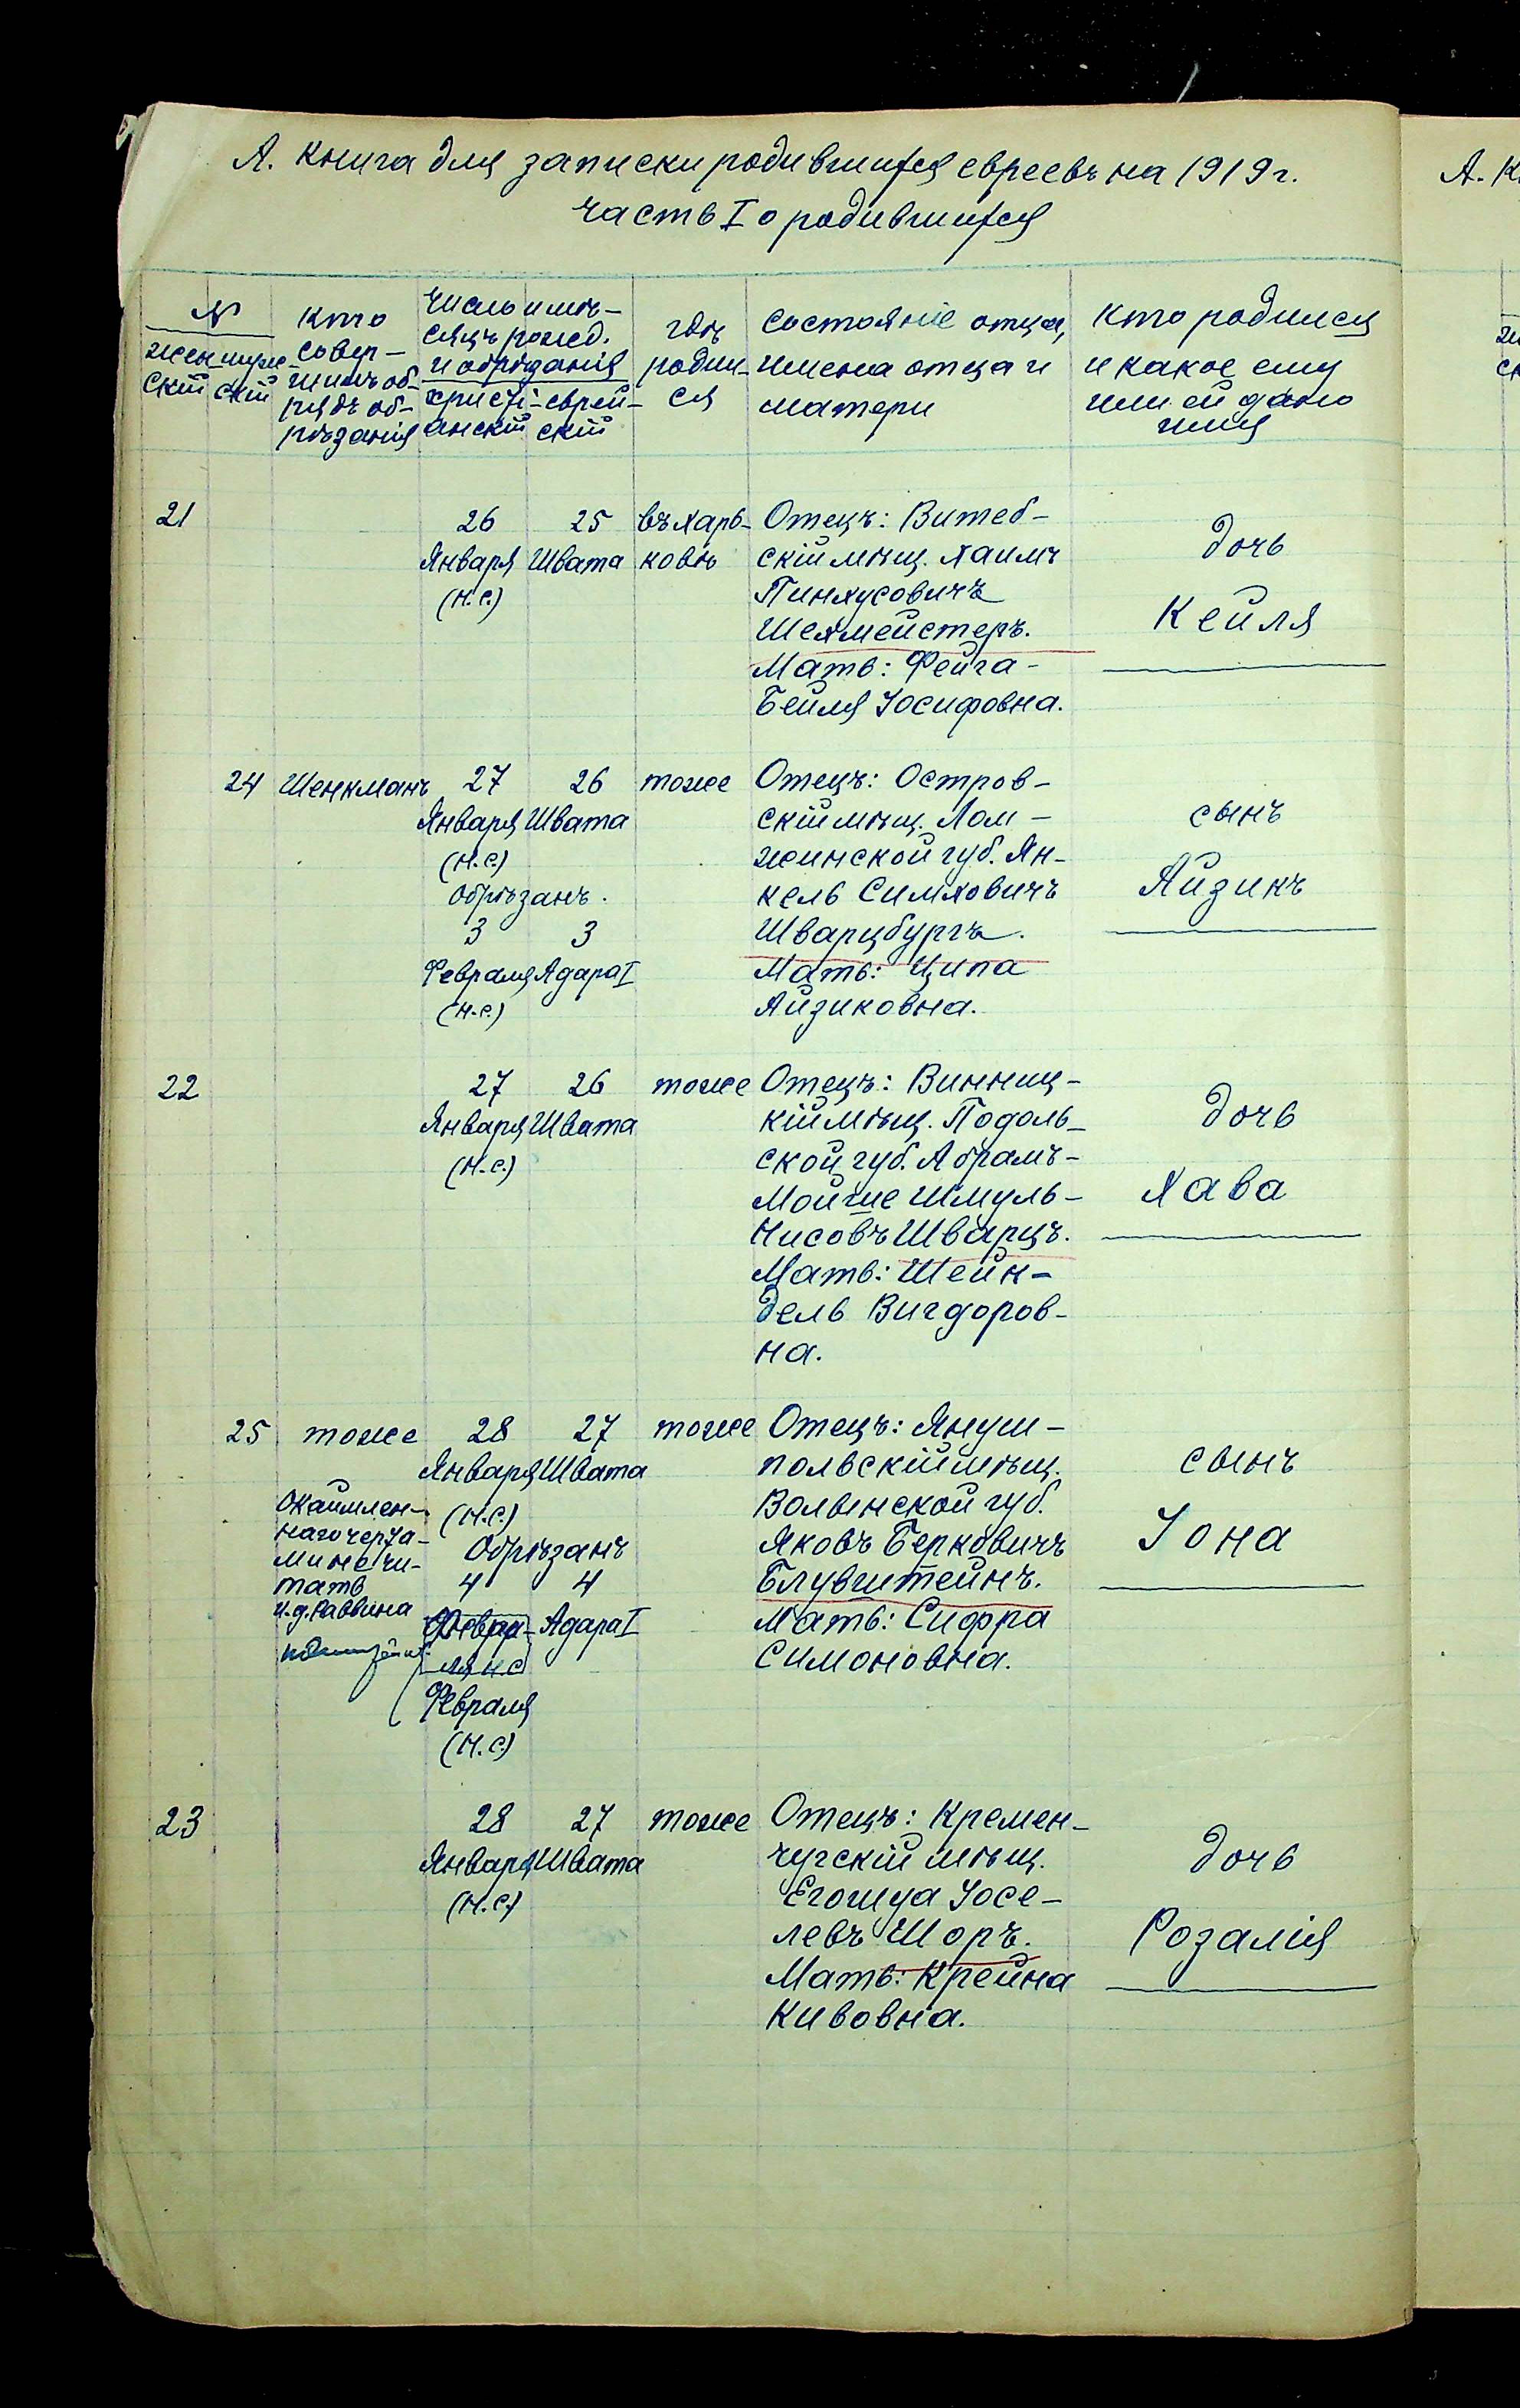 А. Книга для записки родившихся евреевъ на 1919 г.
часть I о родившихся
А. К
№
женскій
мужескій
кто совер-
шилъ об-
рядъ об-
рѣзанія
число и мѣ-
сяцъ рожд.
и обрѣзанія
христі-
анскій
еврей-
скій
гдѣ
родил-
ся
состояніе отца,
имена отца и
матери
кто родился
и какое ему
или ей дано
имя
21
26
Января
(н.с.)
25
Швата
въ Харь-
ковѣ
Отецъ: Витеб-
скій мѣщ. Хаимъ
Пинхусовичъ
Шехмейстеръ.
Мать: Фейга-
Бейля Іосифовна.
дочь
Кейля
24
Шенкманъ
27
Января
(н.с.)
26
Швата
Обрѣзанъ.
3
Февраля
(н.с.)
3
Адара I
тоже
Отецъ: Остров-
скій мѣщ. Лом-
жинской губ. Ян-
кель Симховичъ
Шварцбургъ.
Мать: Ципа
Айзиковна.
сынъ
Айзикъ
22
27
Января
(н.с.)
26
Швата
тоже
Отецъ: Винниц-
кій мѣщ. Подоль-
ской губ. Абрамъ-
Мойше Шмуль-
Нисовъ Шварцъ.
Мать: Шейн-
дель Вигдоров-
на.
дочь
Хава
25
тоже
Окаймлен-
наго черта-
ми не чи-
тать
И.д. Раввина
28
Января
(н.с.)
27
Швата
Обрѣзанъ
4
Февра-
ля н с
Февраля
(н.с.)
4
Адара I
тоже
Отецъ: Януш-
польскій мѣщ.
Волынской губ.
Яковъ Берковичъ
Блувштейнъ.
Мать: Сифра
Симоновна.
сынъ
Іона
23
28
Января
(н.с.)
27
Швата
тоже
Отецъ: Кремен-
чугскій мѣщ.
Егошуа Іосе-
левъ Шоръ.
Мать: Крейна
Кивовна.
дочь
Розалія